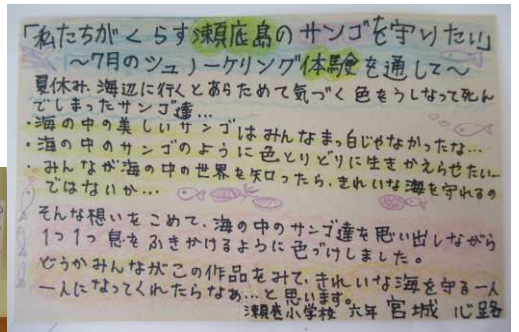 「私たちがくらす瀬底島のサンゴを守りたい」
〜7月のシュノーケリング体験を通して〜
夏休み、海辺に行くとあらためて気づく色をうしなって死ん
でしまったサンゴ達…
・海の中の美しいサンゴはみんなまっ白じゃなかったな…
・海の中のサンゴのように色とりどりに生きかえらせたい…
・みんなが海の中の世界を知ったら、きれいな海を守れるの
ではないか…
そんな想いをこめて、海の中のサンゴ達を思い出しながら
1つ1つ息をふきかけるように色づけしました。
どうかみんながこの作品をみて、きれいな海を守る一人
一人になってくれたらなぁ…と思います。
瀬底小学校 六年 宮城 心路